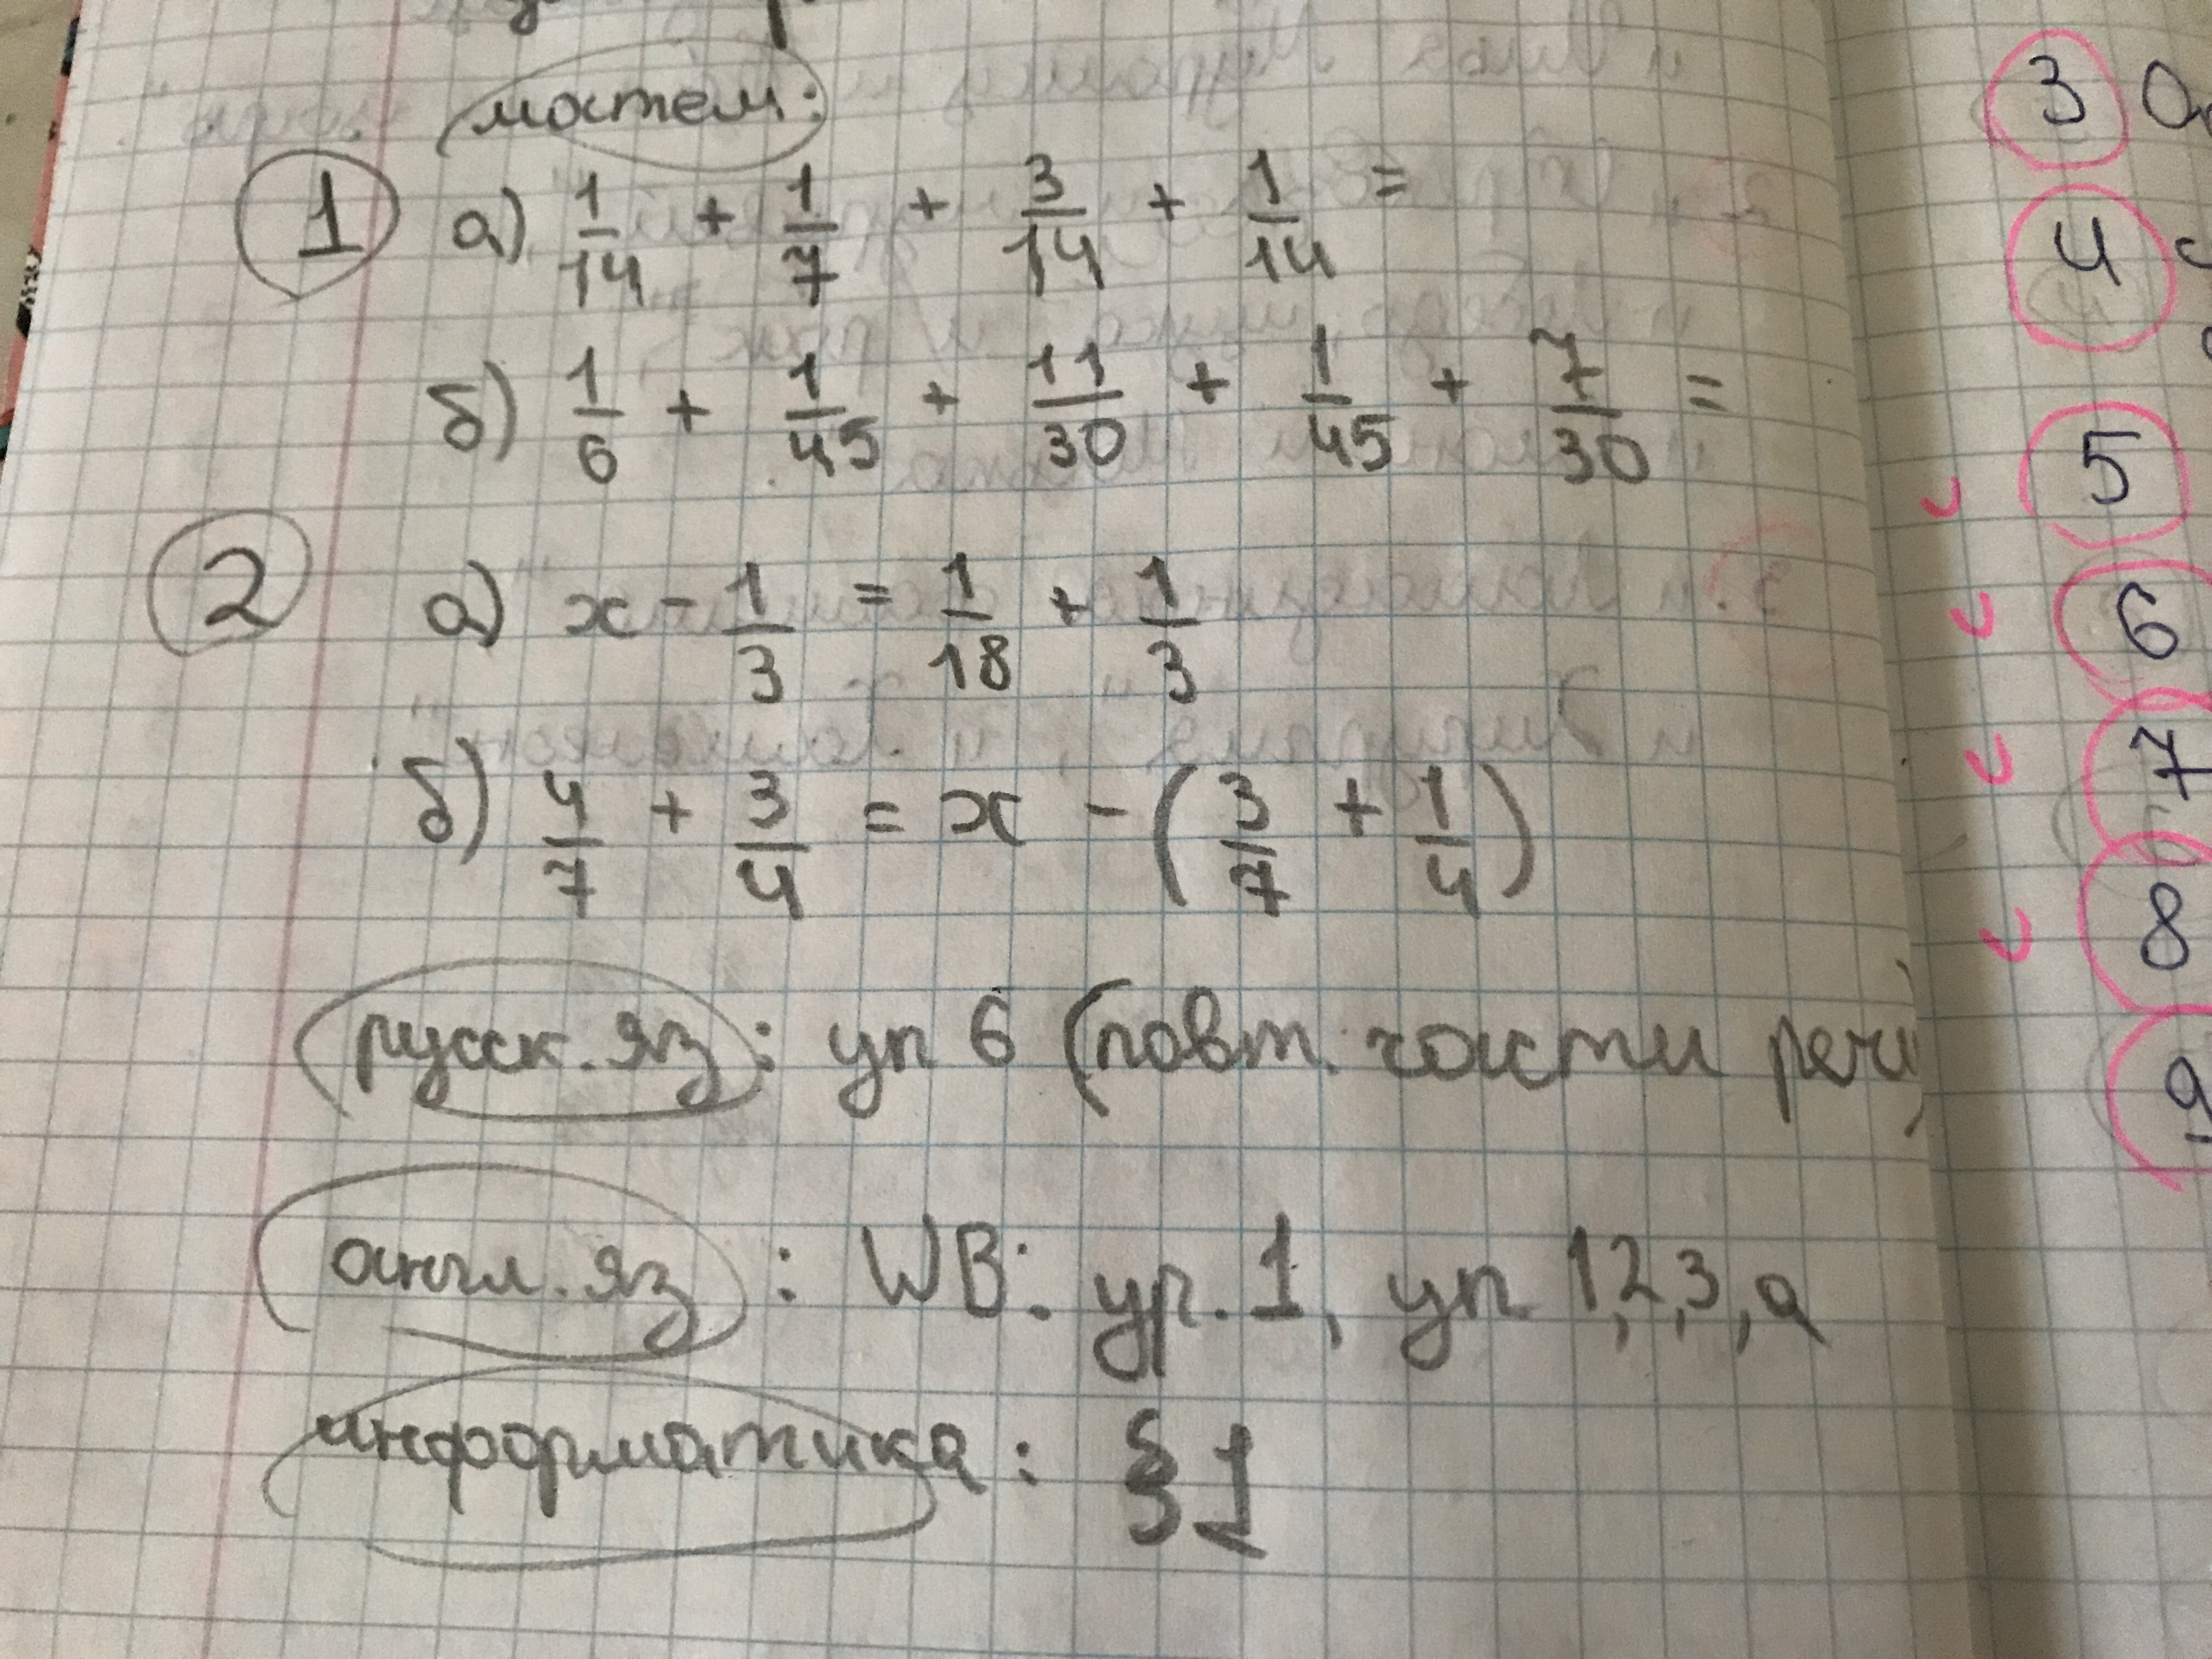 матем:
1 а) 1/14 + 1/7 + 3/14 + 1/14 =
б) 1/6 + 1/45 + 11/30 + 1/45 + 7/30 =
2 а) x - 1/3 = 1/18 + 1/3
б) 4/7 + 3/4 = x - (3/7 + 1/4)
русск. яз: уп 6 (повт. части речи)
англ. яз: WB: ур. 1, уп 1,2,3,а
информатика: §1
3
4
5
6
7
8
9